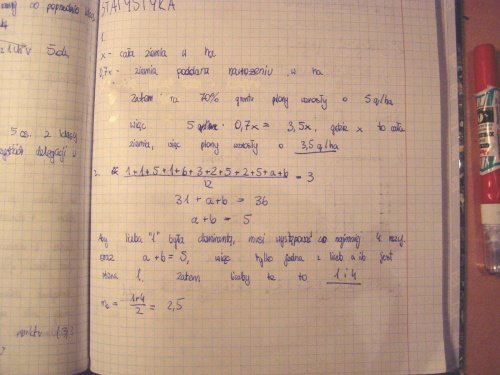 STATYSTYKA
1.
x - cała ziemia w ha
0,7x - ziemia poddana nawożeniu w ha
Zatem na 70% gruntu plony wzrosły o 5 q/ha
więc 5 q/ha · 0,7x = 3,5x, gdzie x to cała
ziemia, więc plony wzrosły o 3,5 q/ha
2. 1+1+5+1+6+3+2+5+2+5+a+b / 12 = 3
31 + a+b = 36
a+b = 5
Aby liczba "1" była dominantą, musi występować co najmniej 4 razy.
oraz a+b = 5, więc tylko jedna z liczb a i b jest
równa 1. Zatem liczby te to 1 i 4
= 1+4 / 2 = 2,5
5 os. z klasy